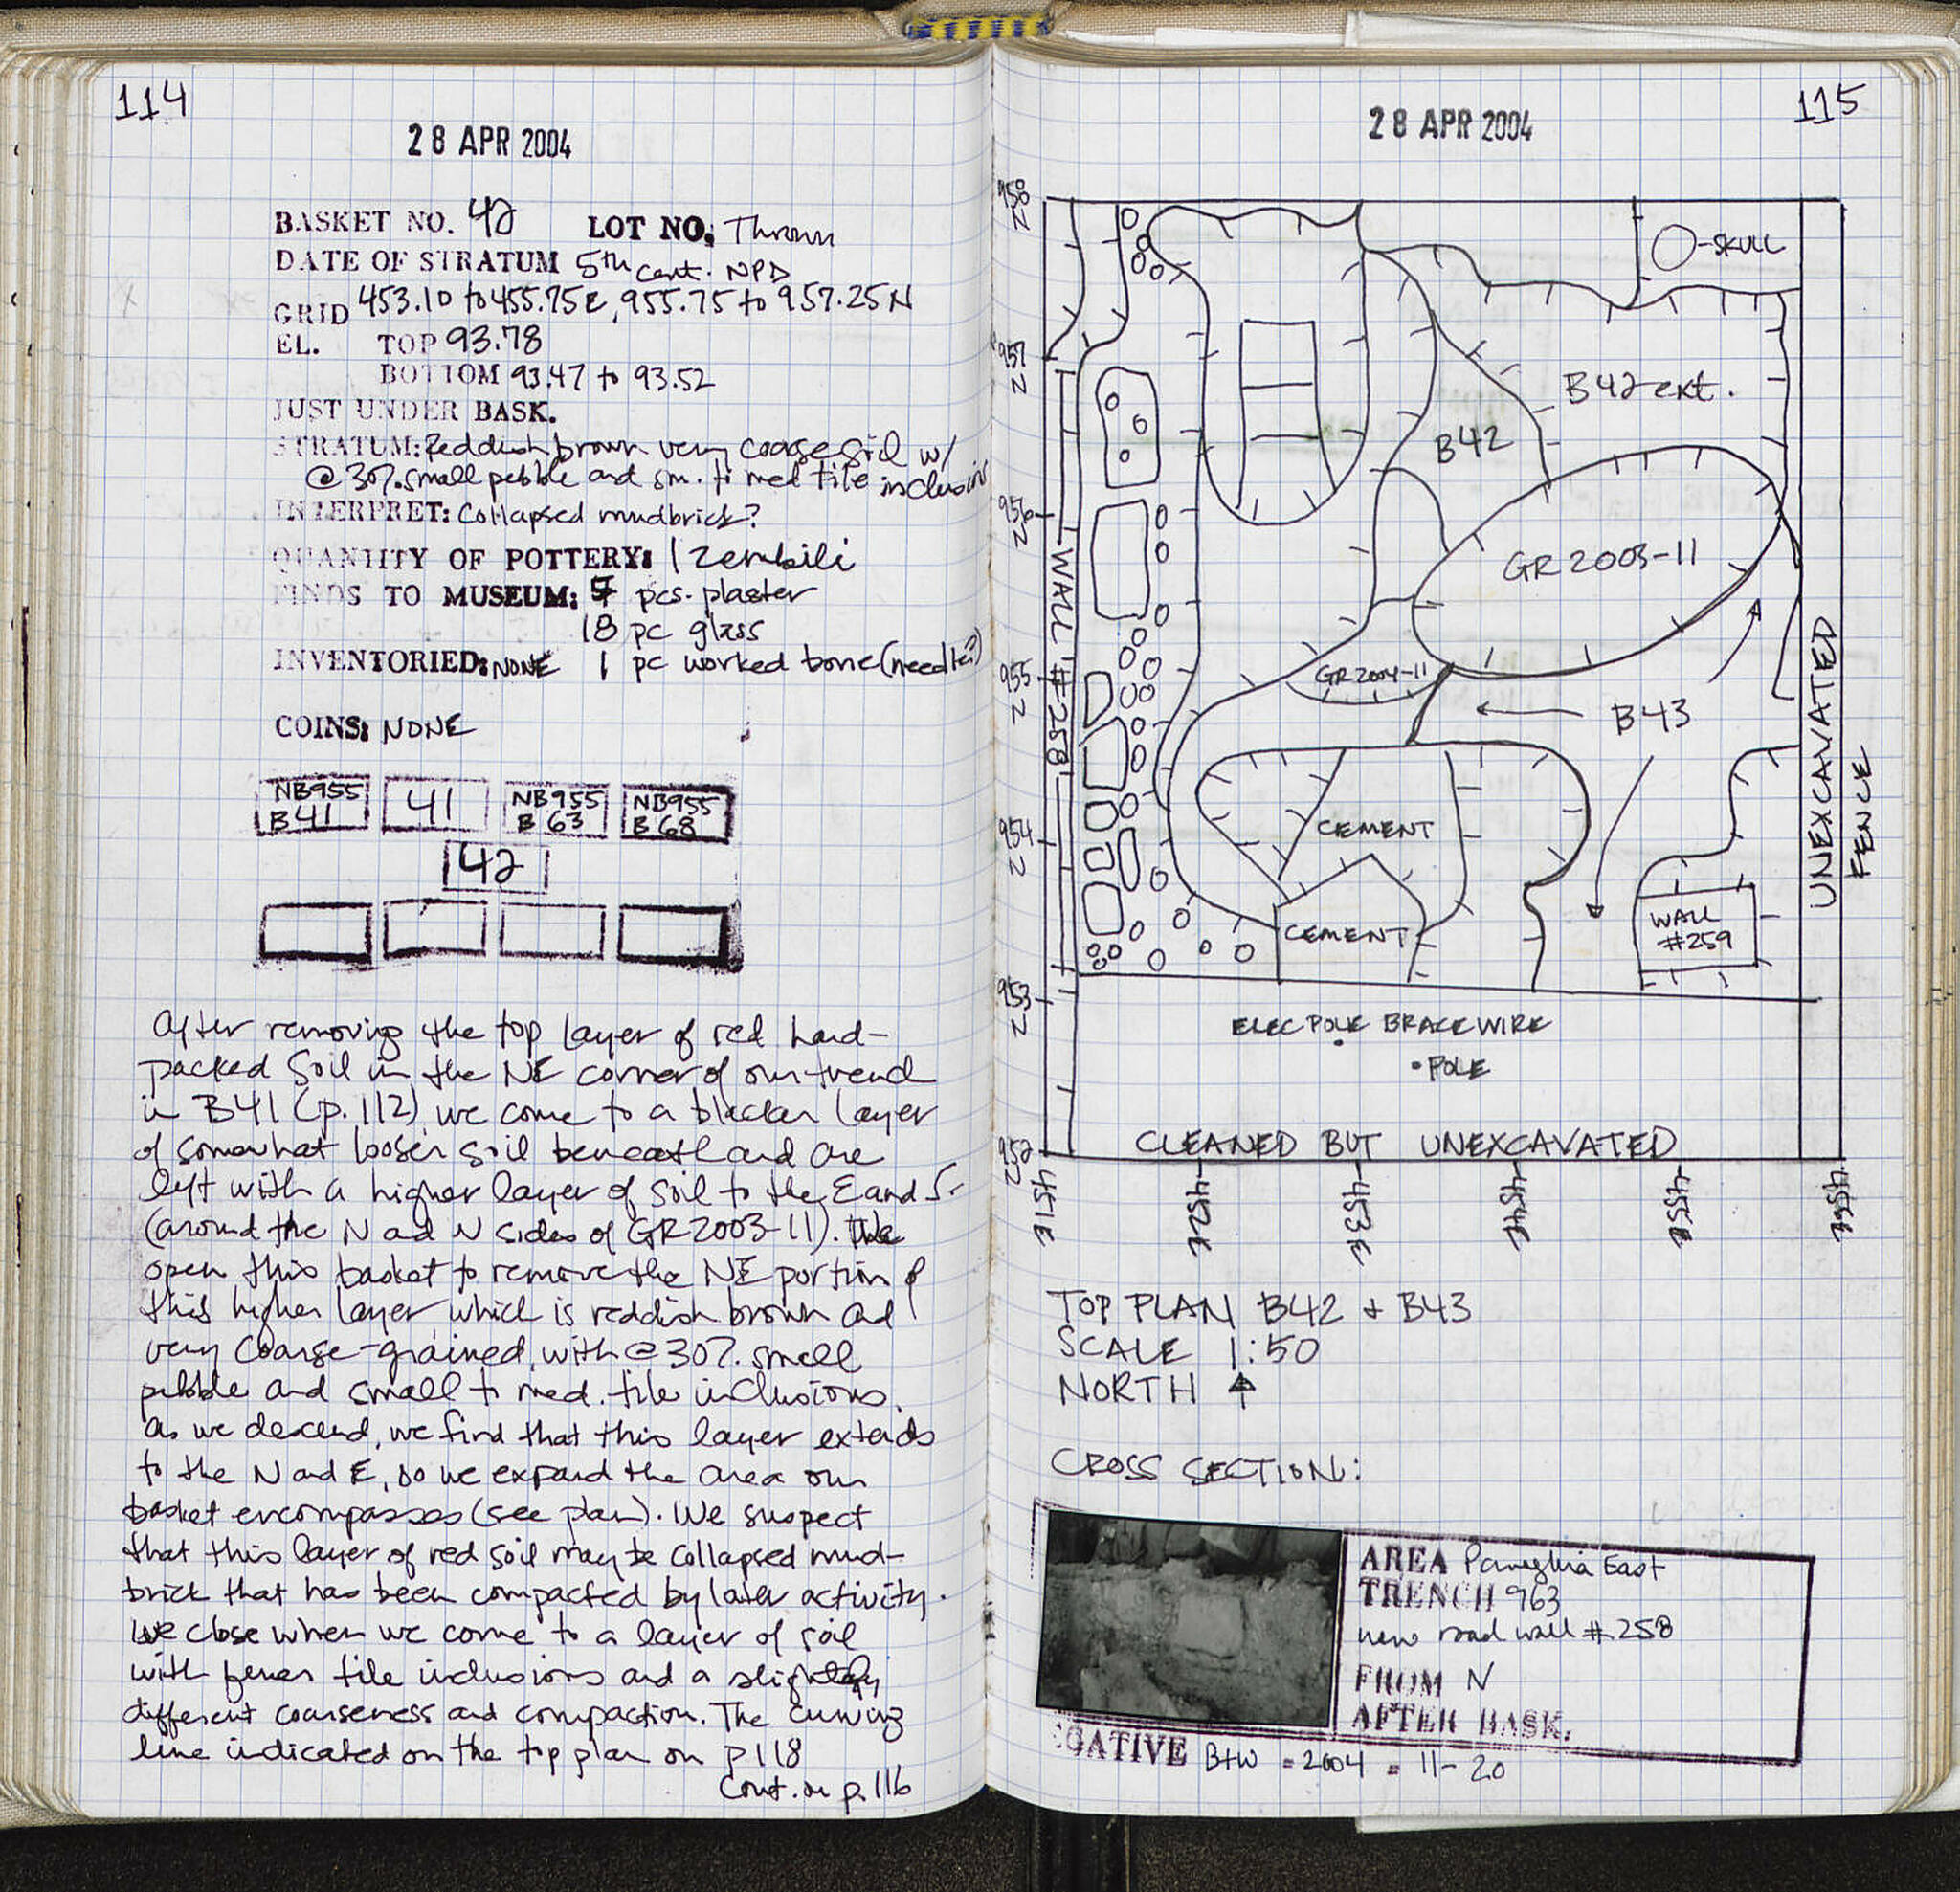 114
28 APR 2004
BASKET NO. 42 LOT NO. Thrown
DATE OF STRATUM 5th cent. NPD
GRID 453.10 to 455.75E, 955.75 to 957.25N
EL. TOP 93.78
BOTTOM 93.47 to 93.52
JUST UNDER BASK.
STRATUM: Reddish brown very coarse soil w/
@ 30% small pebble and sm. to med tile inclusions
INTERPRET: Collapsed mudbrick?
QUANTITY OF POTTERY: 1 zembili
FINDS TO MUSEUM: pcs. plaster
18 pc glass
INVENTORIED: NONE 1 pc worked bone (needle?)
COINS: NONE
NB955 B41
41
NB955 B 63
NB955 B 68
42
After removing the top layer of red hard-
packed soil in the NE corner of our trench
in B41 (p. 112), we come to a blacker layer
of somewhat looser soil beneath and are
left with a higher layer of soil to the E and S.
(around the N and N sides of GR 2003-11). We
open this basket to remove the NE portion of
this higher layer, which is reddish brown and
very coarse-grained, with @ 30% small
pebble and small to med. tile inclusions.
As we descend, we find that this layer extends
to the N and E, so we expand the area our
basket encompasses (see plan). We suspect
that this layer of red soil may be collapsed mud-
brick that has been compacted by later activity.
We close when we come to a layer of soil
with fewer tile inclusions and a slightly
different coarseness and compaction. The curving
line indicated on the top plan on p 118
Cont. on p. 116
115
28 APR 2004
958 N
957 N
956 N
955 N
954 N
953 N
952 N
O-SKULL
B42 ext.
B42
GR 2003-11
WALL #258
GR 2004-11
B43
UNEXCAVATED
FENCE
CEMENT
CEMENT
WALL #259
ELEC POLE BRACE WIRE
POLE
CLEANED BUT UNEXCAVATED
451E 452E 453E 454E 455E 456E
TOP PLAN B42 + B43
SCALE 1:50
NORTH ↑
CROSS SECTION:
AREA Panayhia East
TRENCH 963
new road wall # 258
FROM N
AFTER BASK.
EGATIVE B+W - 2004 - 11-20